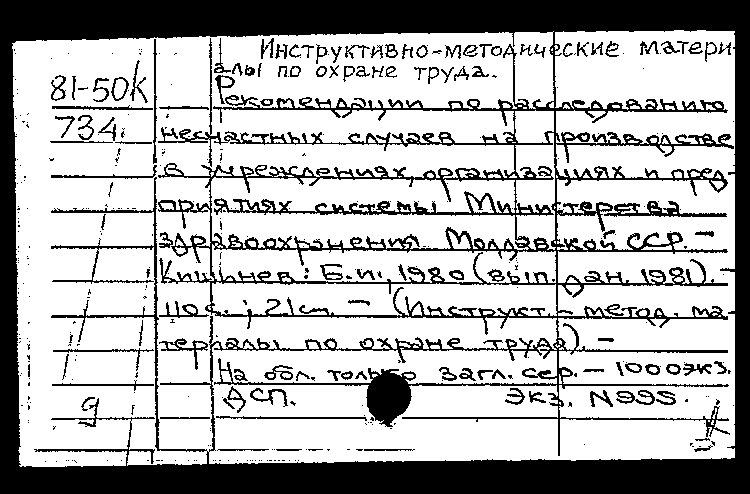 Инструктивно-методические матери-
алы по охране труда.
81-50К
734.
Рекомендации по расследованию
несчастных случаев на производстве
в учреждениях, организациях и пред-
приятиях системы Министерства
здравоохранения Молдавской ССР. -
Кишинев: Б.и., 1980 (вып. дан. 1981). -
110 с.; 21 см. - (Инструкт.-метод. ма-
териалы по охране труда). -
На обл. только загл. сер. - 1000 экз.
д
ДСП. Экз. N995.